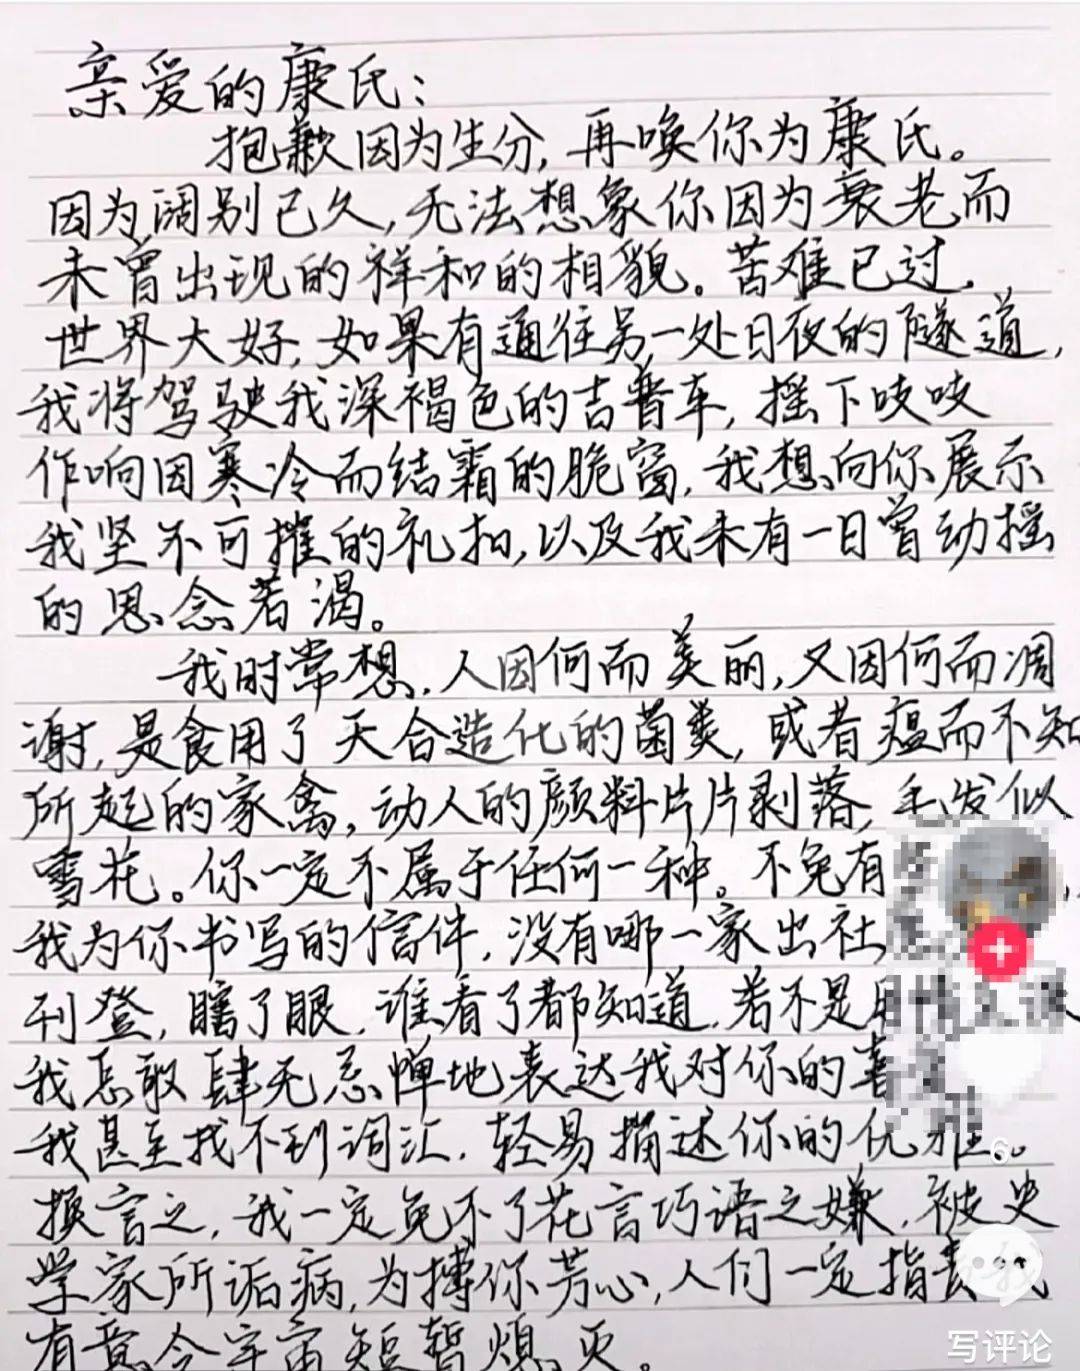 亲爱的康氏：
抱歉因为生分，再唤你为康氏。
因为阔别已久，无法想象你因为衰老而
未曾出现的祥和的相貌。苦难已过，
世界大好，如果有通往另一处日夜的隧道，
我将驾驶我深褐色的吉普车，摇下吱吱
作响因寒冷而结霜的脆窗，我想向你展示
我坚不可摧的礼扣，以及我未有一日曾动摇
的思念若渴。
我时常想，人因何而美丽，又因何而凋
谢，是食用了天合造化的菌类，或者瘟而不知
所起的家禽，动人的颜料片片剥落，毛发似
雪花。你一定不属于任何一种。不免有
我为你书写的信件，没有哪一家出社
刊登，瞎了眼，谁看了都知道，若不是
我怎敢肆无忌惮地表达我对你的喜
我甚至找不到词汇，轻易描述你的优雅。
换言之，我一定免不了花言巧语之嫌，被史
学家所诟病，为搏你芳心，人们一定指责我
有意令宇宙短暂熄灭。
6
写评论